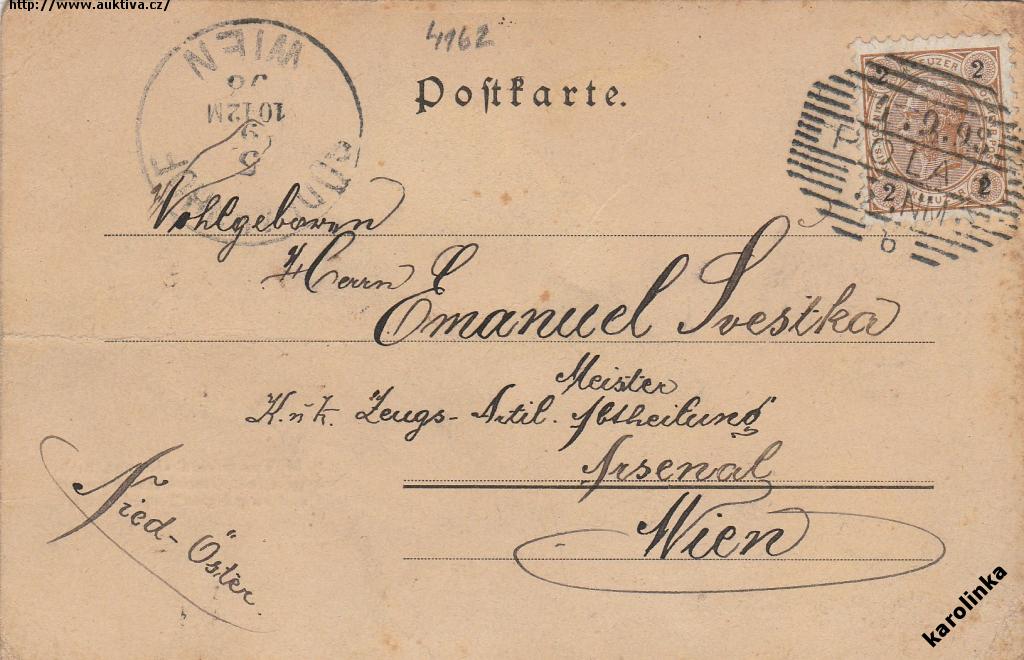 http://www.auktiva.cz/
4962
Postkarte.
WIEN
10-12M
9
5
2 KREUZER 2
1.9.98
2 2
Wohlgeboren
Herrn
Emanuel Svestka
Meister
K. u. k. Zeugs-Artil. Abtheilung
Arsenal
Wien
Nied-Öster.
karolinka